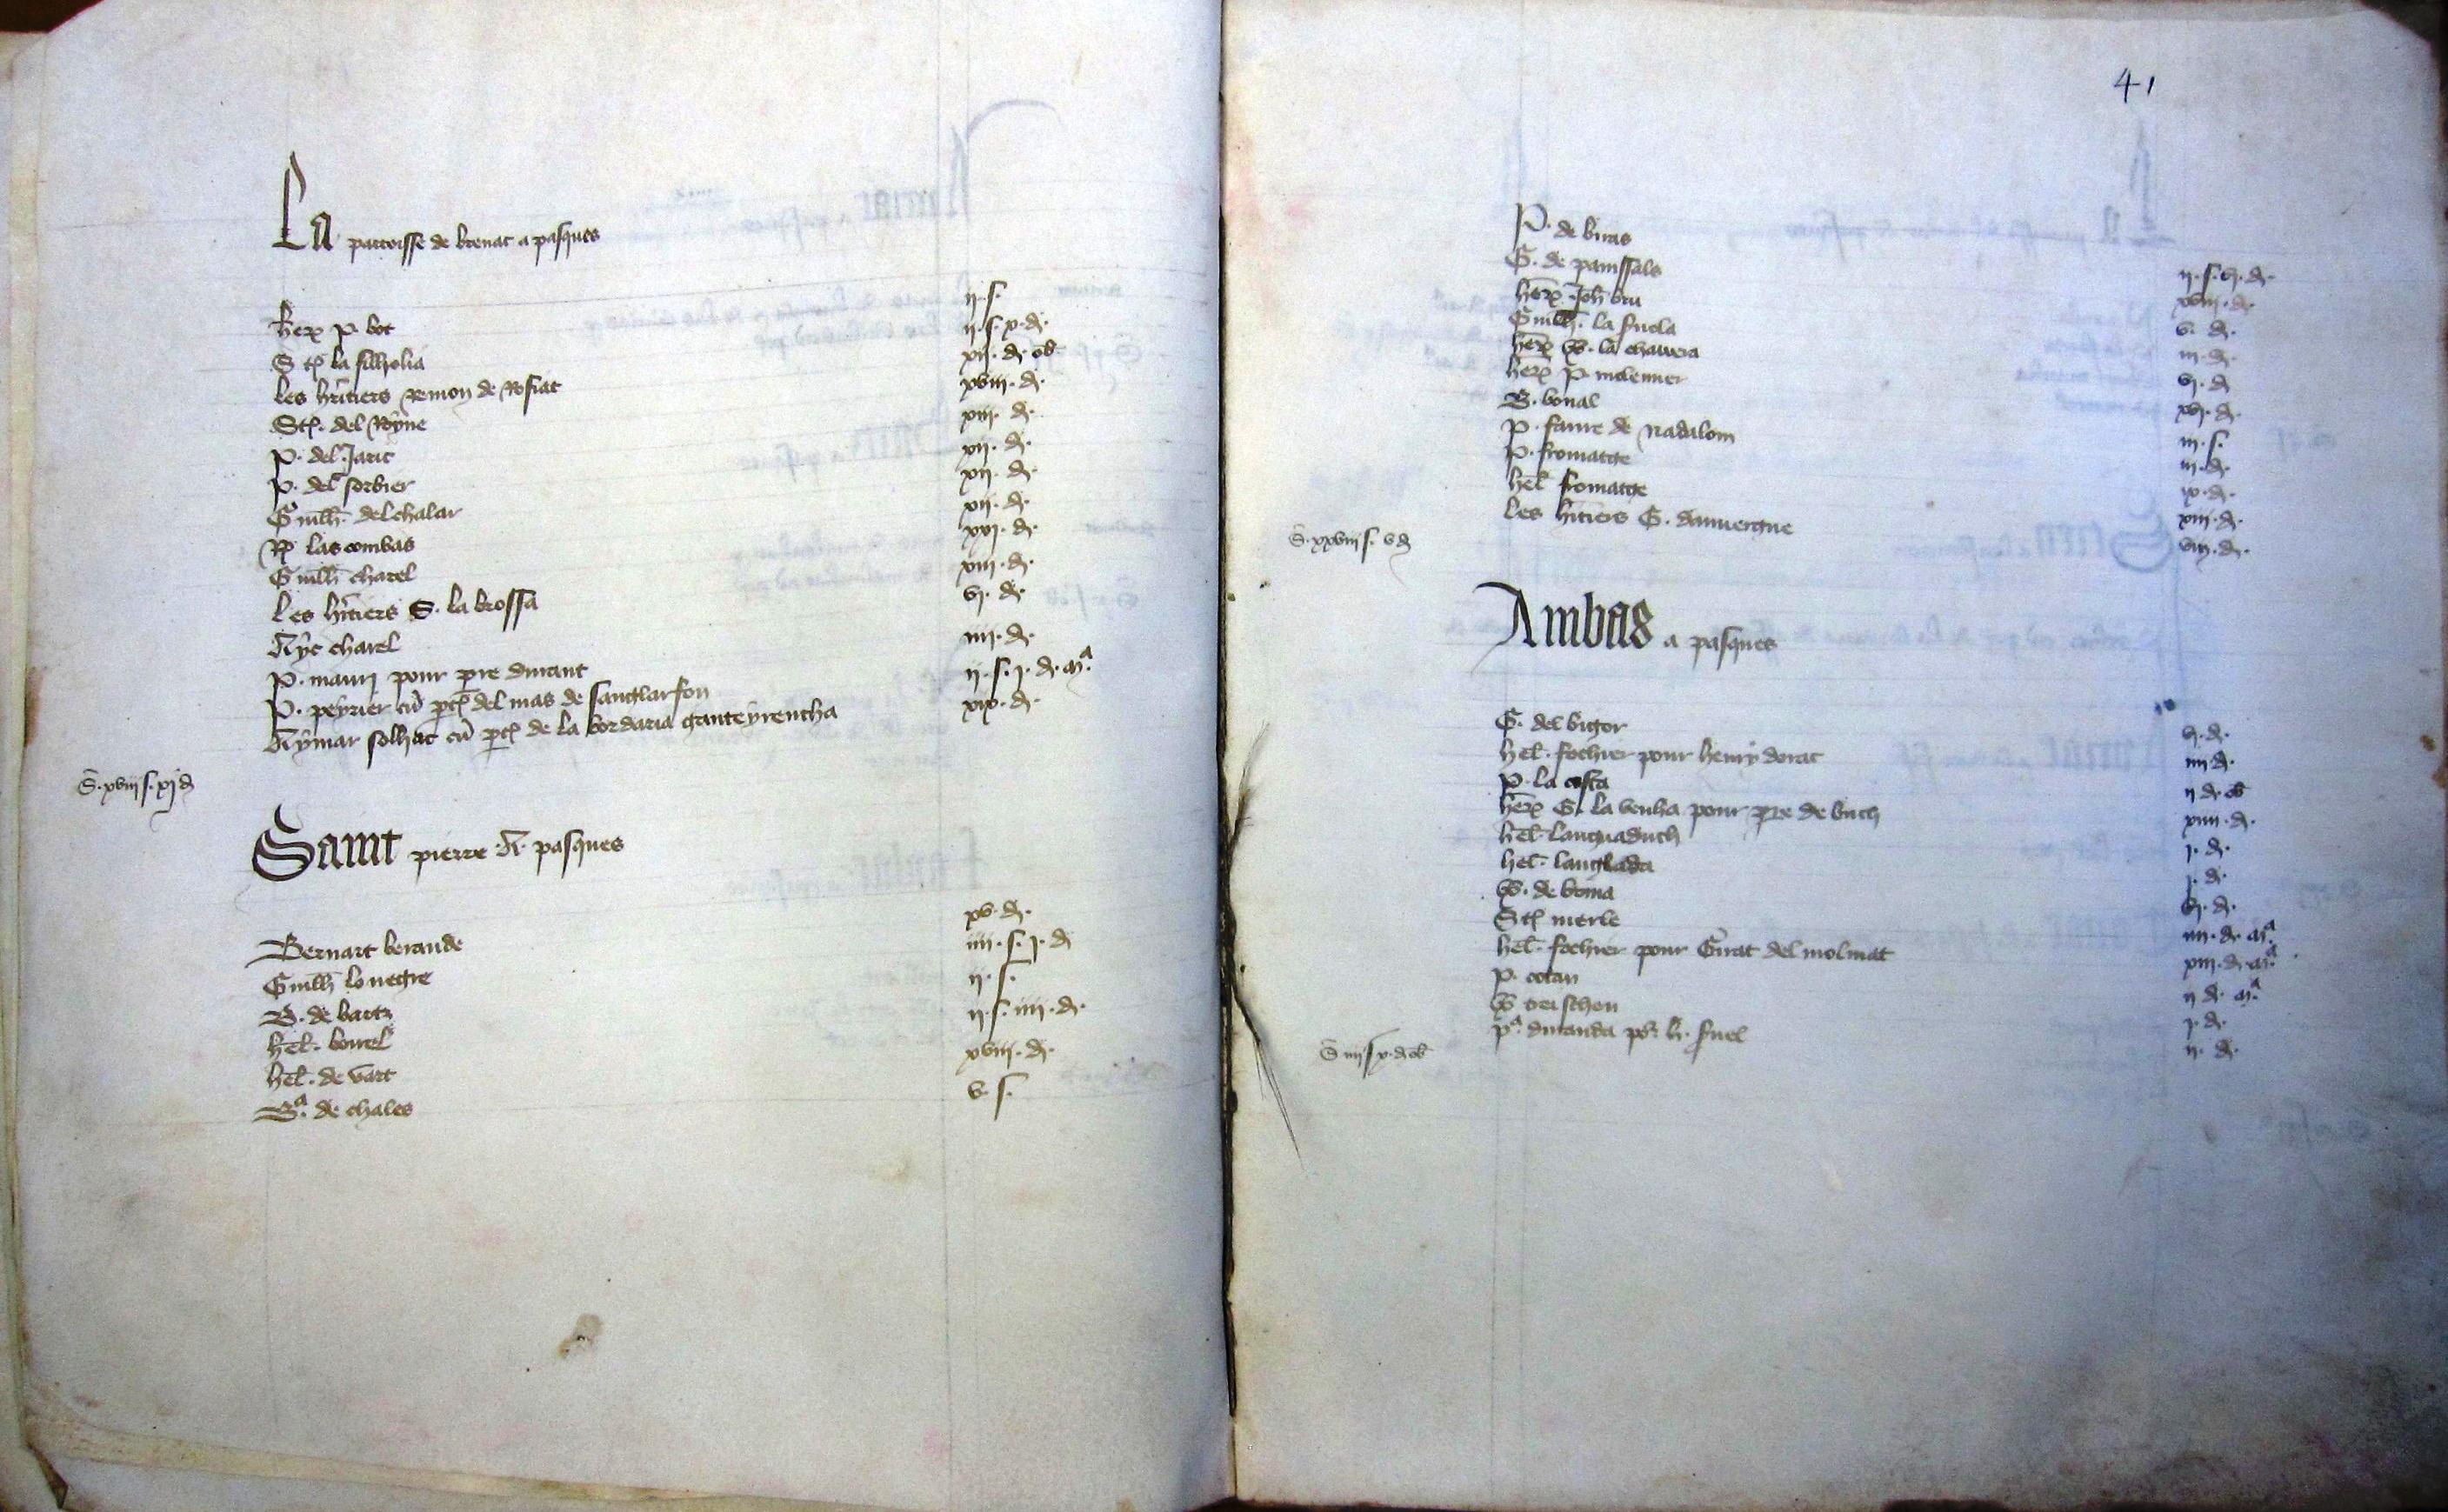 La parroisse de brenac a pasques
her P. bot ii. s.
S tp̄ la filholia ii. s. x. d.
les hr̄itiers remon de Rofiac xii. d. ob̄
Stp̄. del Royne xviii. d.
P. del Jaric xiii. d.
P. del sorbier xii. d.
Guilh̄. del chalar xii. d.
R las combas xii. d.
Guilh̄ charel xvi. d.
Les hr̄itiers S. la brossa xiii. d.
Ayc charel vi. d.
P. mauri pour pre durant iiii. d.
P. peyrier cū pctp̄ del mas de sanglarson ii. s. i. d. mª.
Aymar solhac cū pctp̄ de la bordaria ganteyrencha xix. d.
S̄. xviii s. xi d
Saint pierre A pasques
Bernart beraude xv. d.
Guilh̄ lo negre iiii. s. i. d
B. de bartz ii. s.
hel̄. bonel ii. s. iiii. d.
hel̄. de vart xviii. d.
Bª. de chales v. s.
41
P. de buras ii. s. vi. d.
G. de panissals xviii. d.
her̄ Joh̄ bru v. d.
Guilh̄. la fuola iii. d.
her̄ W. la chaura vi. d
her̄ P. molenier xvi. d.
B. bonal iii. s.
P. faure de Nadalom iii. d.
P. fromatge ix. d.
hel̄ fromatge xiii. d.
Les hr̄itiers G. dauuergne viii. d.
S̄. xxviii s. v d
Ambas a pasques
G. del bigor vi. d.
hel̄. fochier pour henry dorat iiii d.
P. la costa ii d. ob̄
her̄ G. la venha pour pre de buch xiiii. d.
hel̄. languaduch i. d.
hel̄. langlada i. d.
W. de boma vi. d.
Stp̄ merle iiii. d. mª.
hel̄. fochier pour Girat del molinat xiii. d. mª.
P. cotan ii d. mª.
W treischou i. d.
pª. duranda po. h. fuel ii. d.
S̄ iiii s x. d. ob̄